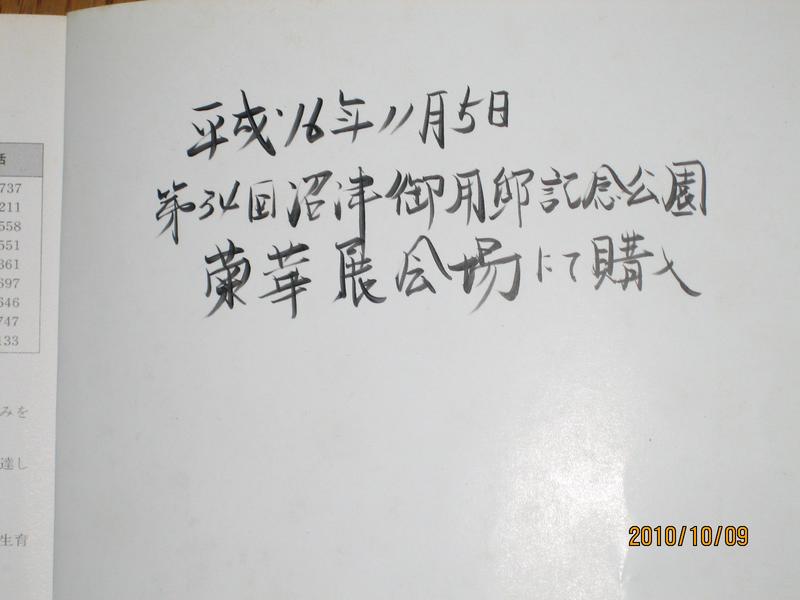 平成16年11月5日
第34回沼津御用邸記念公園
蘭華展会場にて購入
話
737
211
558
551
361
697
646
747
133
みを
達し
生育
2010/10/09